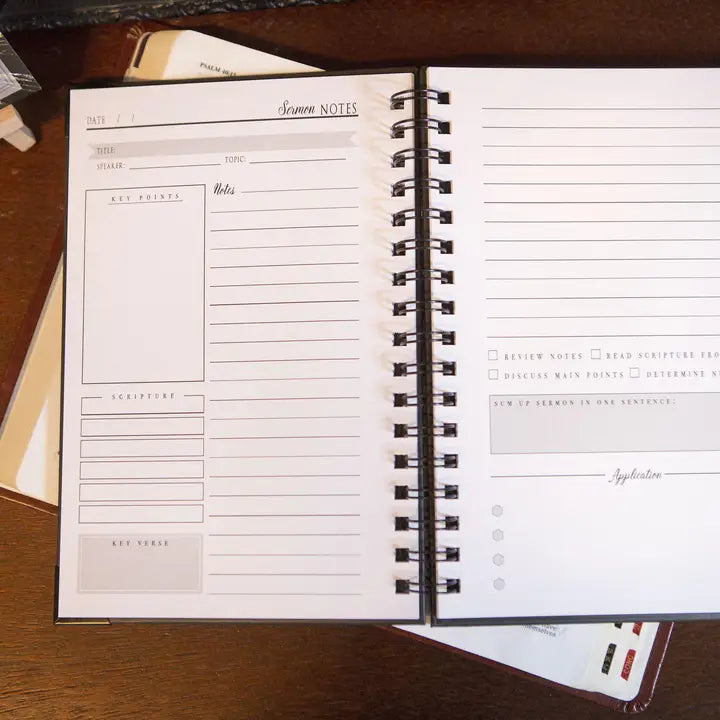 PSALM
DATE / /
Sermon NOTES
TITLE:
SPEAKER:
TOPIC:
KEY POINTS
Notes
SCRIPTURE
KEY VERSE
REVIEW NOTES
READ SCRIPTURE
DISCUSS MAIN POINTS
DETERMINE
SUM UP SERMON IN ONE SENTENCE:
Application
themselves